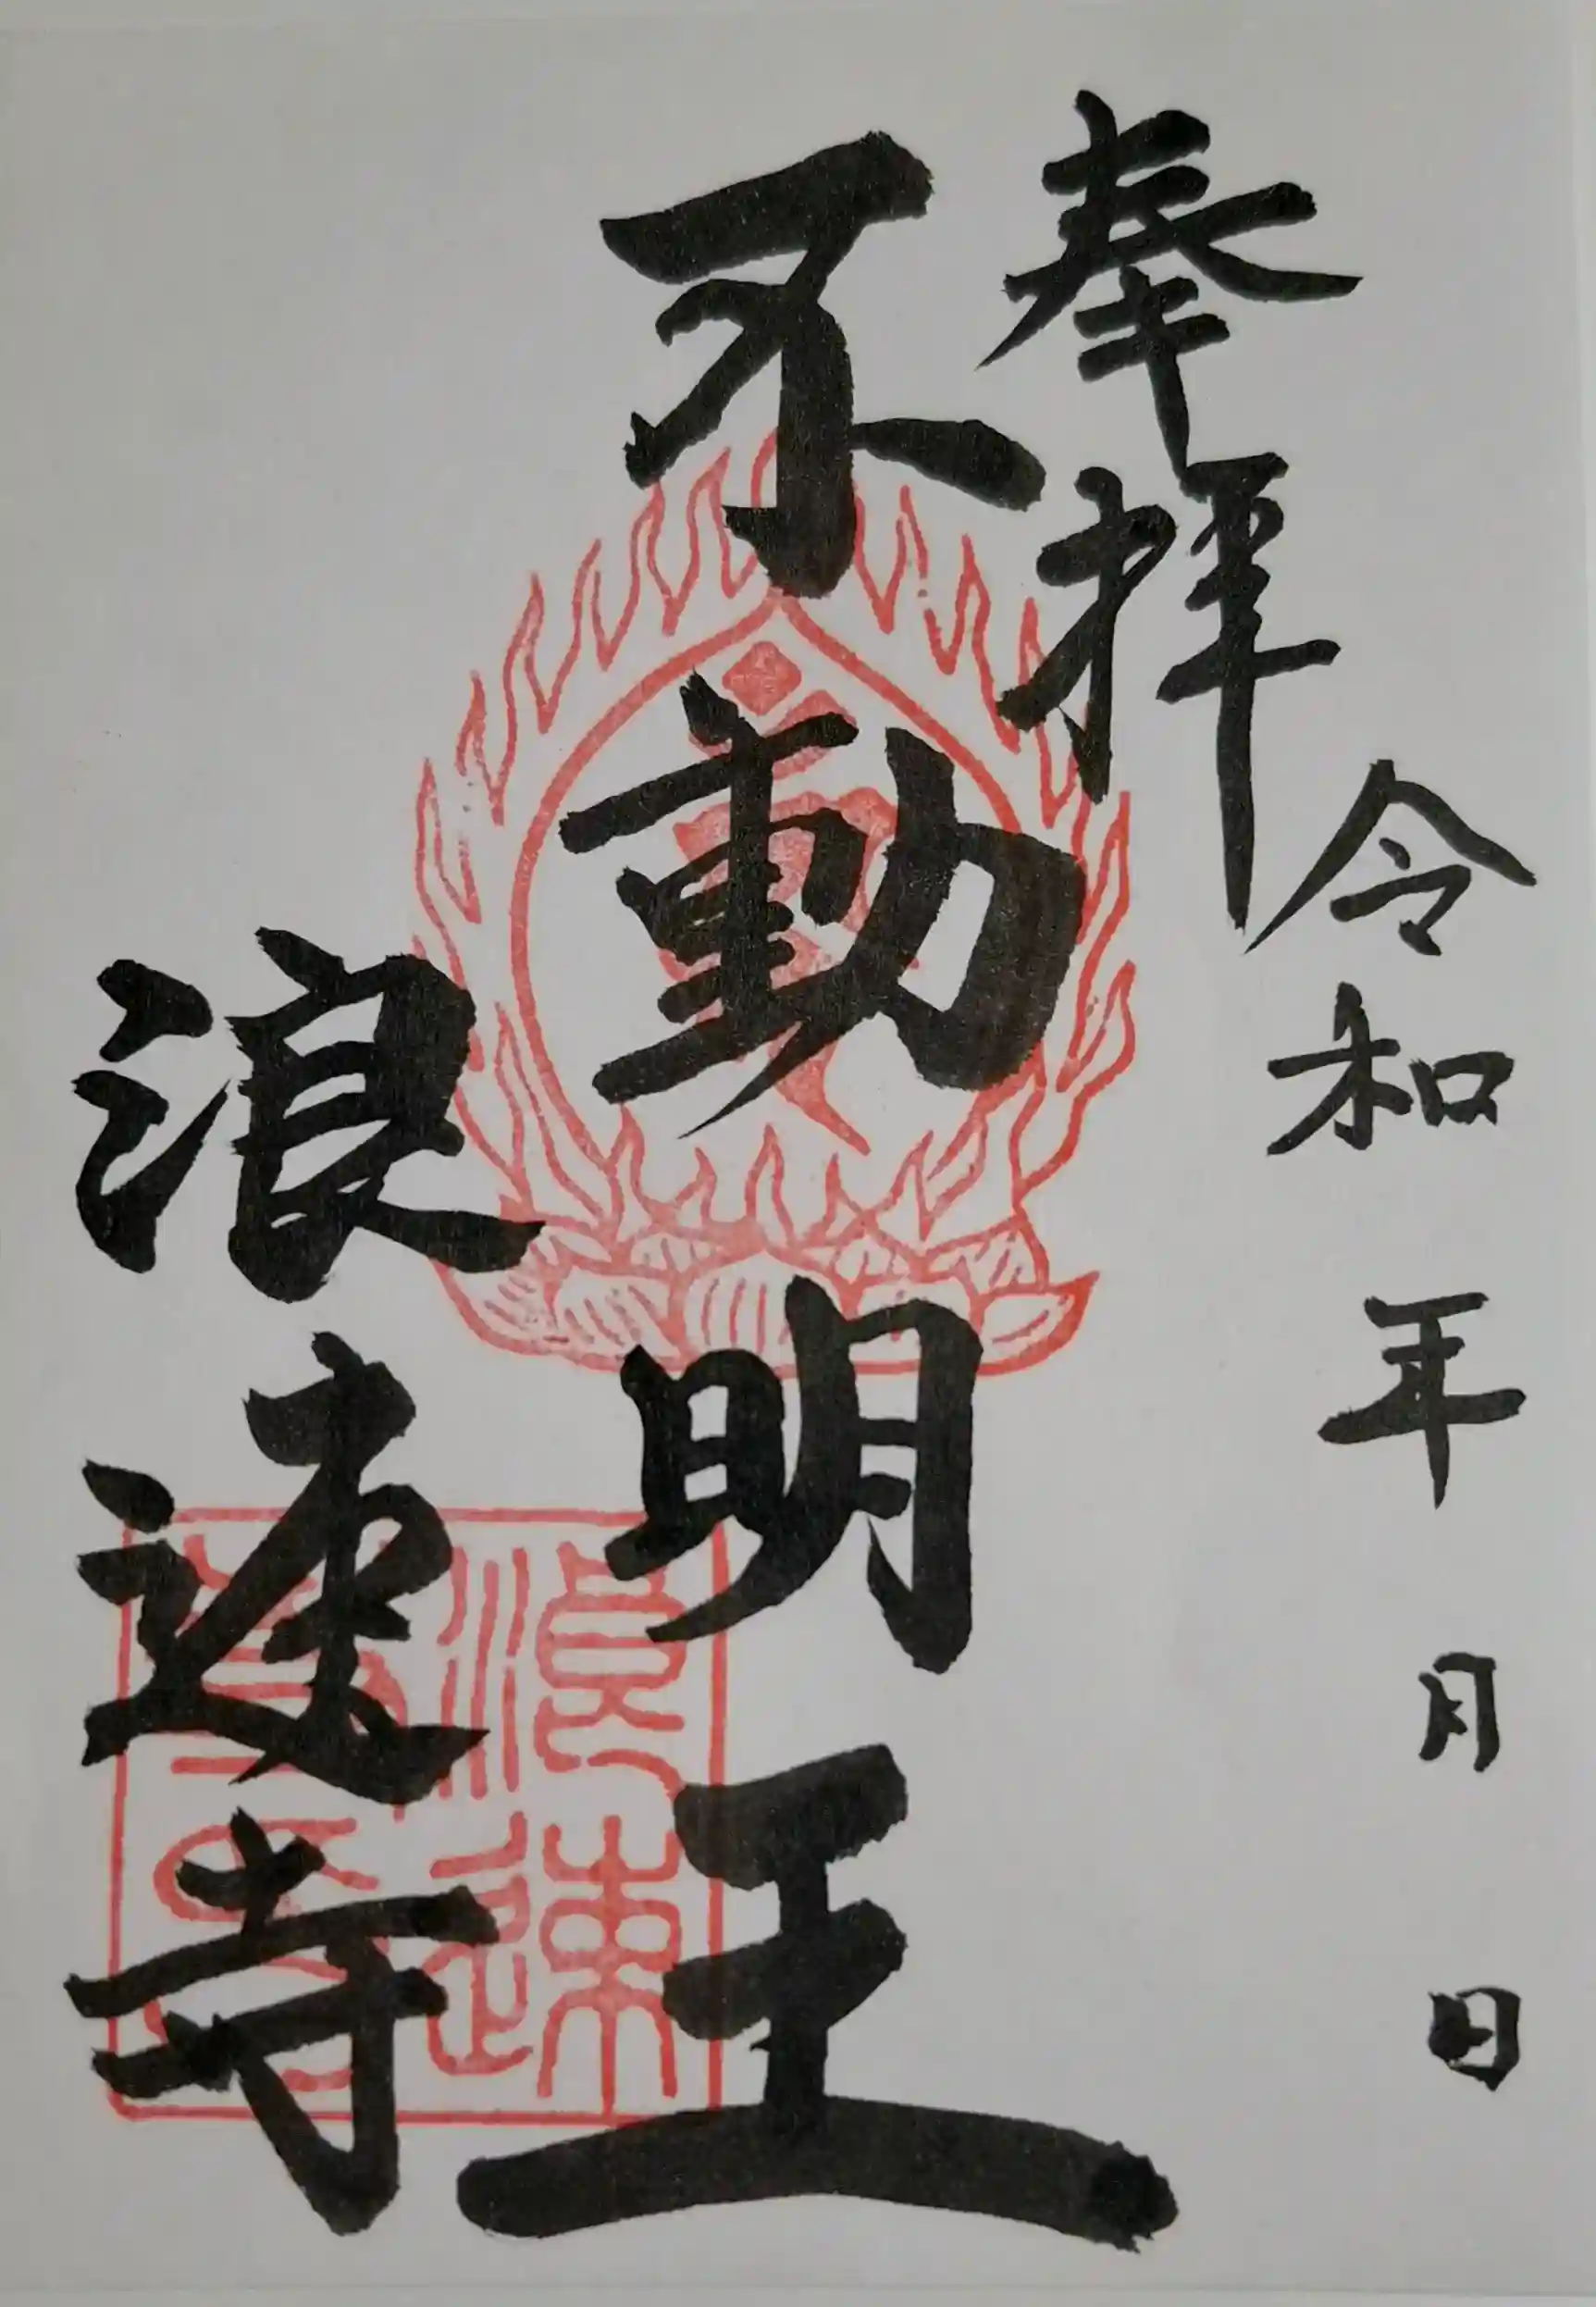 奉拝
令和 年 月 日
不動明王
浪速寺
浪速